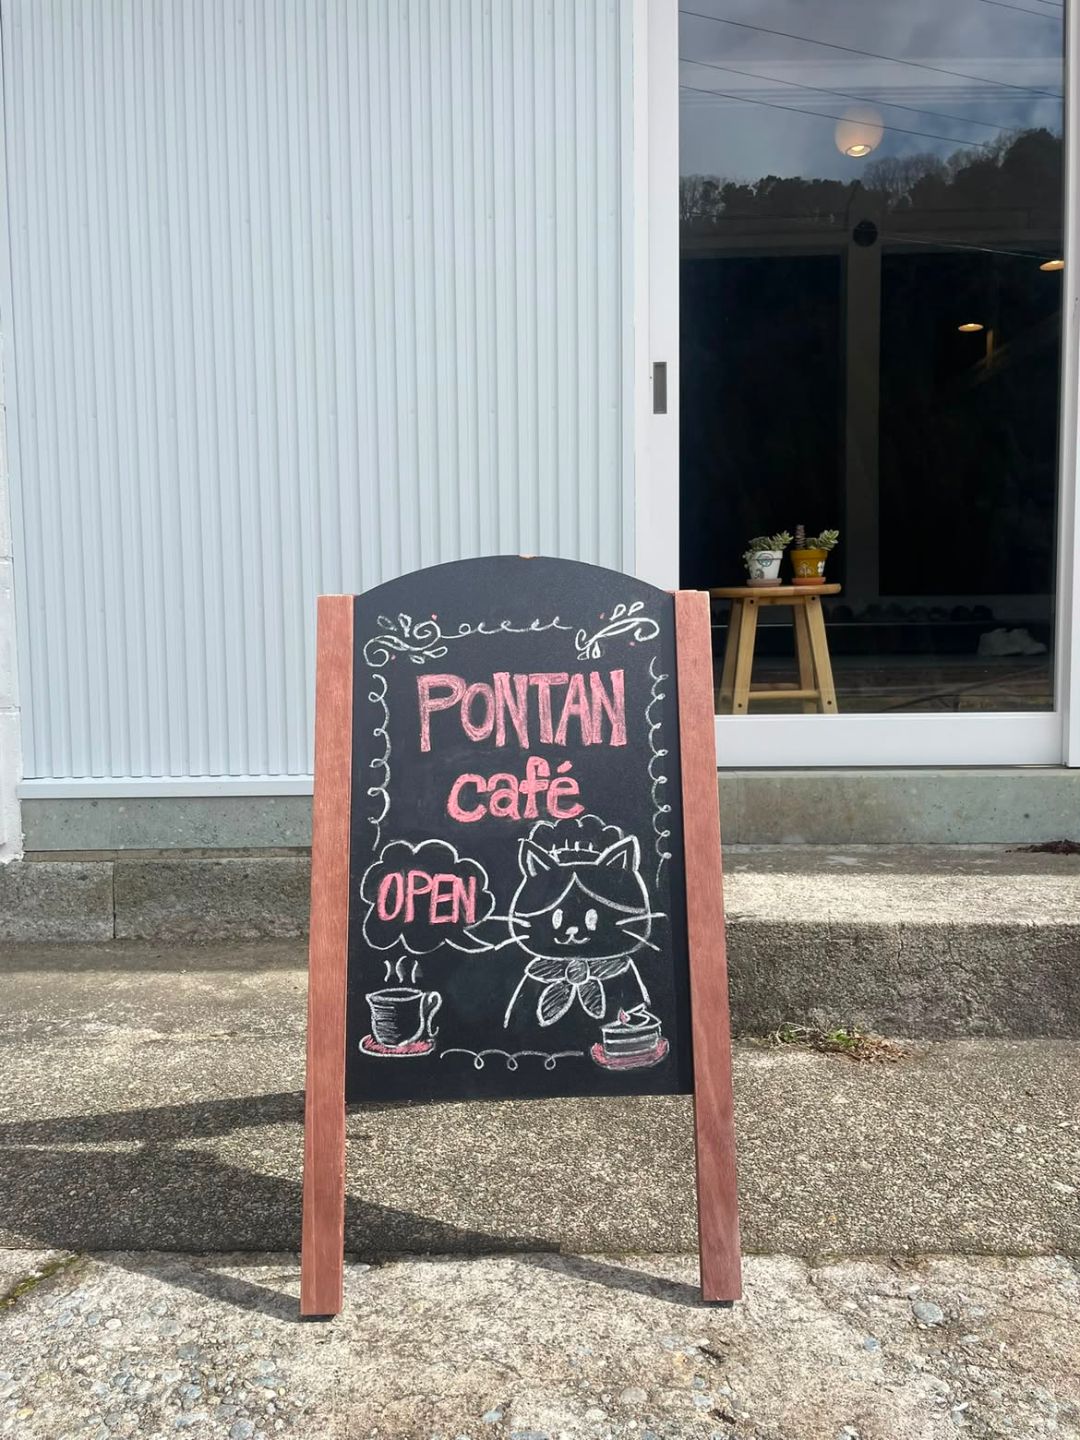 PONTAN
café
OPEN